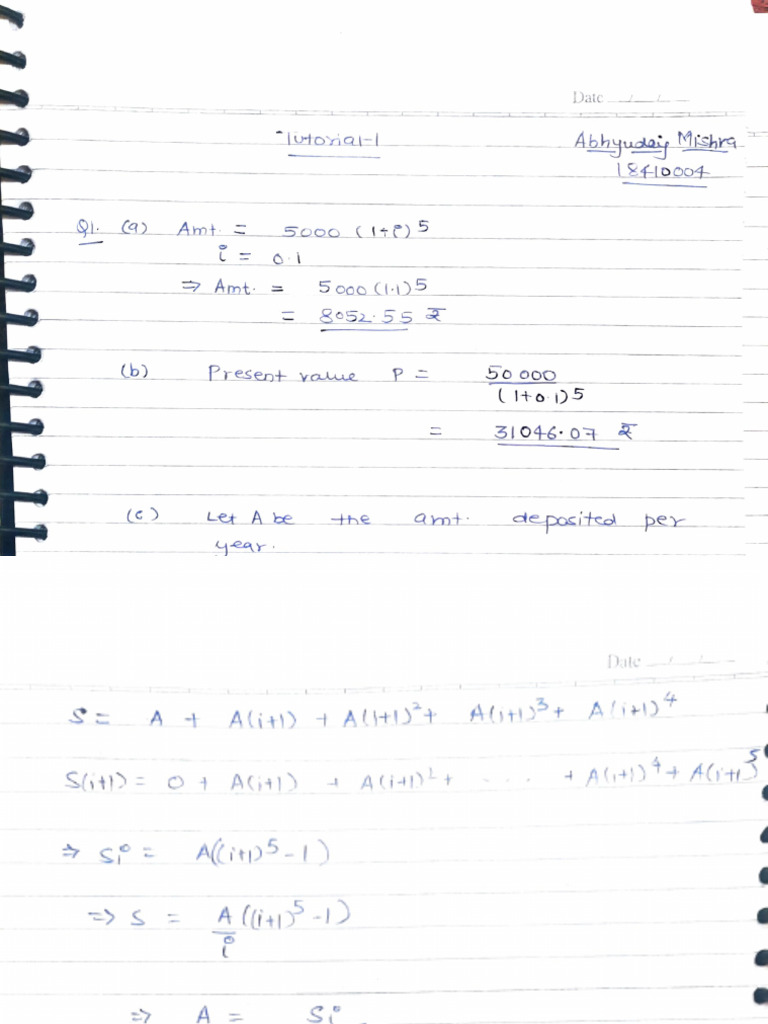 Date __/__/__
Tutorial-1
Abhyuday Mishra
18410004
Q1. (a) Amt. = 5000 (1+i)^5
i = 0.1
⇒ Amt. = 5000 (1.1)^5
= 8052.55 ₹
(b) Present value P = 50000 / (1+0.1)^5
= 31046.07 ₹
(c) Let A be the amt. deposited per
year.
Date __/__/__
S = A + A(i+1) + A(1+1)^2 + A(i+1)^3 + A(i+1)^4
S(i+1) = 0 + A(i+1) + A(i+1)^2 + . . . . + A(i+1)^4 + A(i+1)^5
⇒ Si = A((i+1)^5 - 1)
⇒ S = A/i ((i+1)^5 - 1)
⇒ A = Si